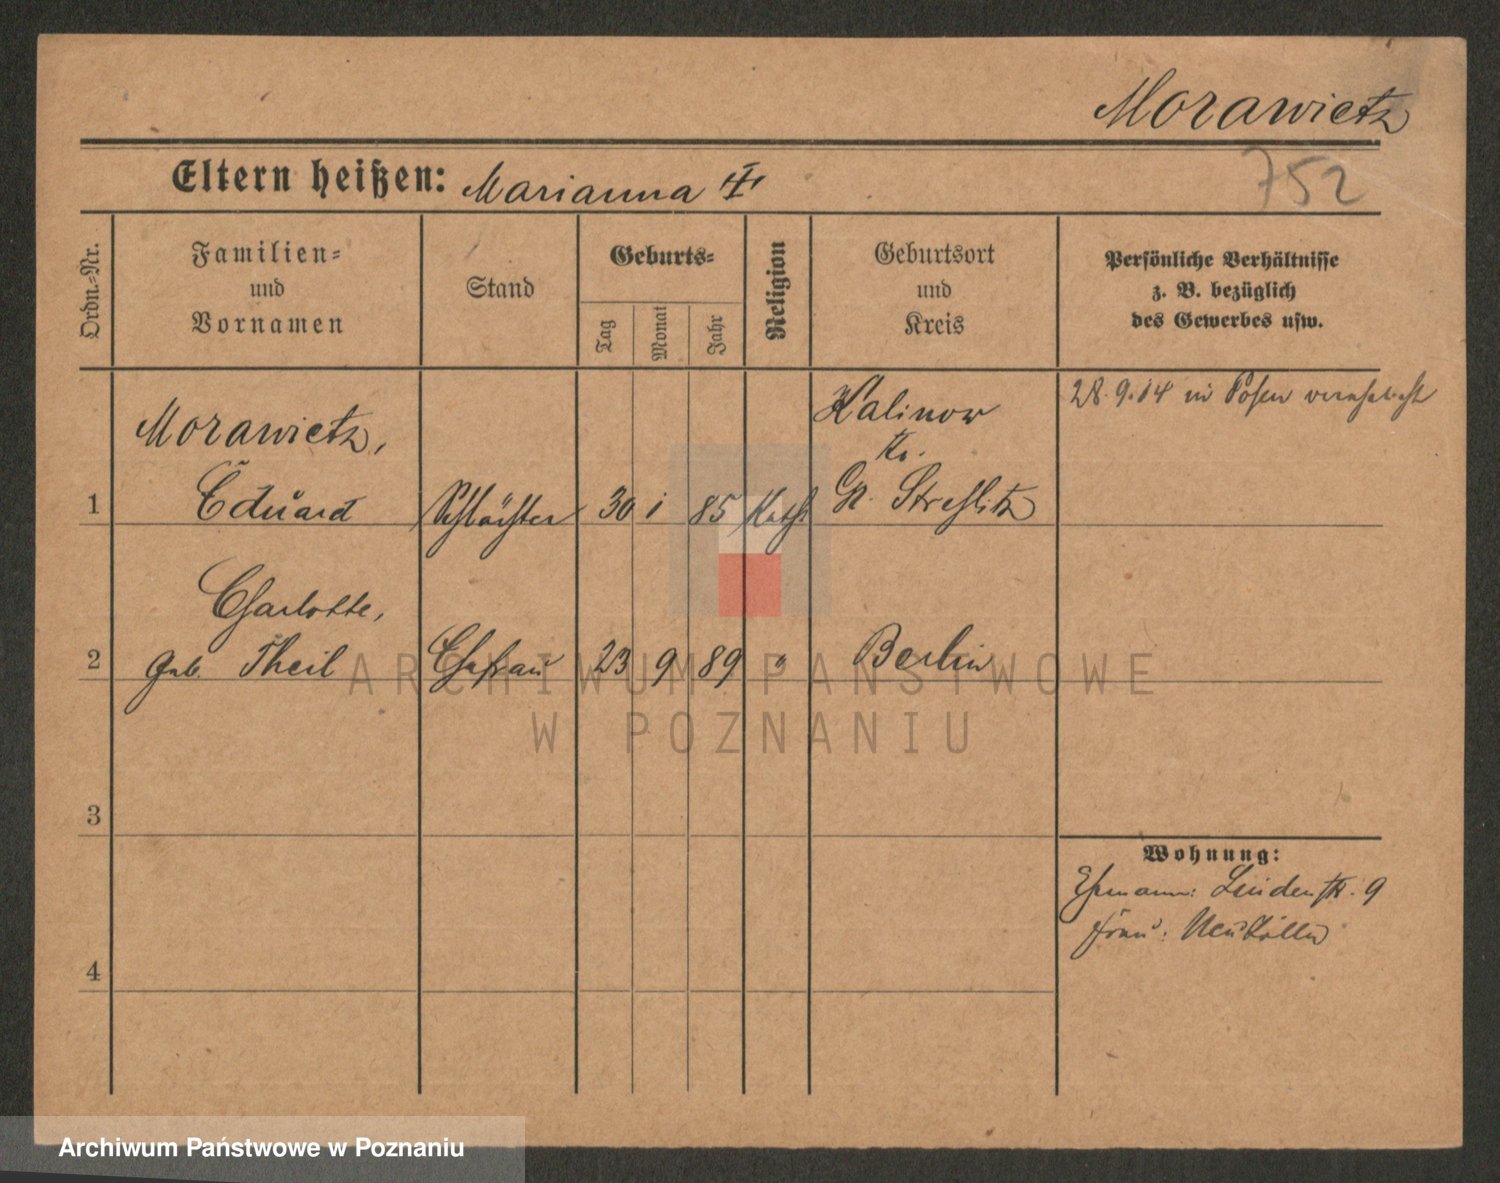 Morawietz
752
Eltern heißen: Marianna
Ordn.-Nr.
Familien-
und
Vornamen
Stand
Geburts-
Tag
Monat
Jahr
Religion
Geburtsort
und
Kreis
Persönliche Verhältnisse
z. B. bezüglich
des Gewerbes usw.
1
Morawietz,
Eduard
Schlächter
30
1
85
Kath
Kalinow
Kr.
Gr. Strehlitz
28.9.14 in Posen verehelicht
2
Charlotte,
geb. Theil
Ehefrau
23
9
89
"
Berlin
3
4
Wohnung:
Ehemann: Lindenstr. 9
Frau: Neukölln
ARCHIWUM PAŃSTWOWE
W POZNANIU
Archiwum Państwowe w Poznaniu